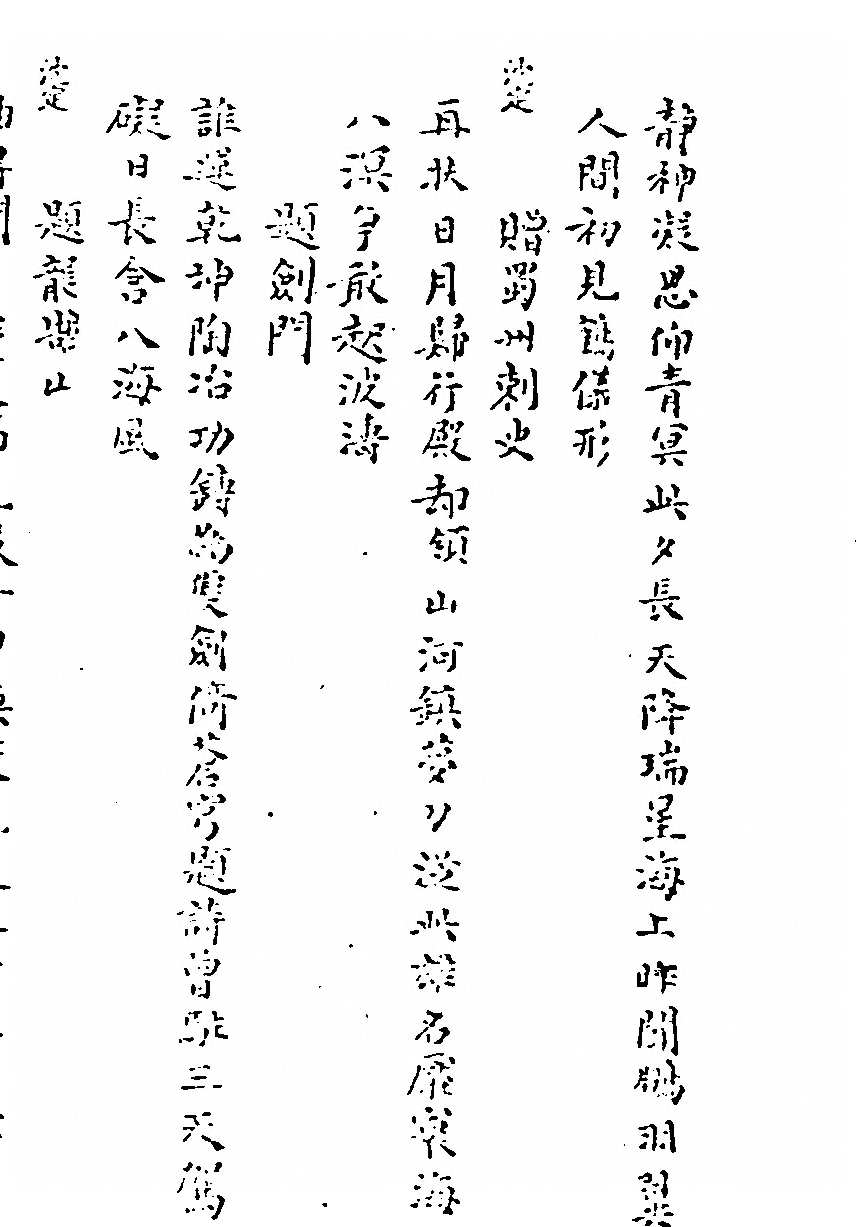 靜神凝思仰青冥此夕長天降瑞星海上昨聞鵬羽翼
人間初見鶴儀形
贈蜀州刺史
再扶日月歸行殿却領山河鎮夢刀從此雄名壓寰海
八溟爭敢起波濤
題劍門
誰運乾坤陶冶功鑄為雙劍倚蒼穹題詩曾駐三天駕
礙日長含八海風
題龍鬱山